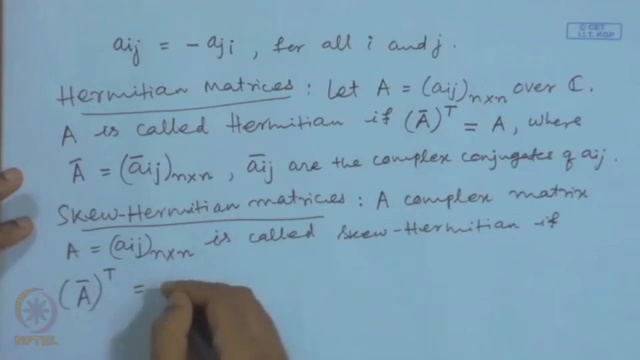 © CET
I.I.T. KGP
aij = - aji , for all i and j.
Hermitian Matrices : Let A = (aij)n×n over ℂ.
A is called Hermitian if (Ā)ᵀ = A, where
Ā = (āij)n×n , āij are the complex conjugates of aij.
Skew-Hermitian matrices : A complex matrix
A = (aij)n×n is called skew-Hermitian if
(Ā)ᵀ =
NPTEL